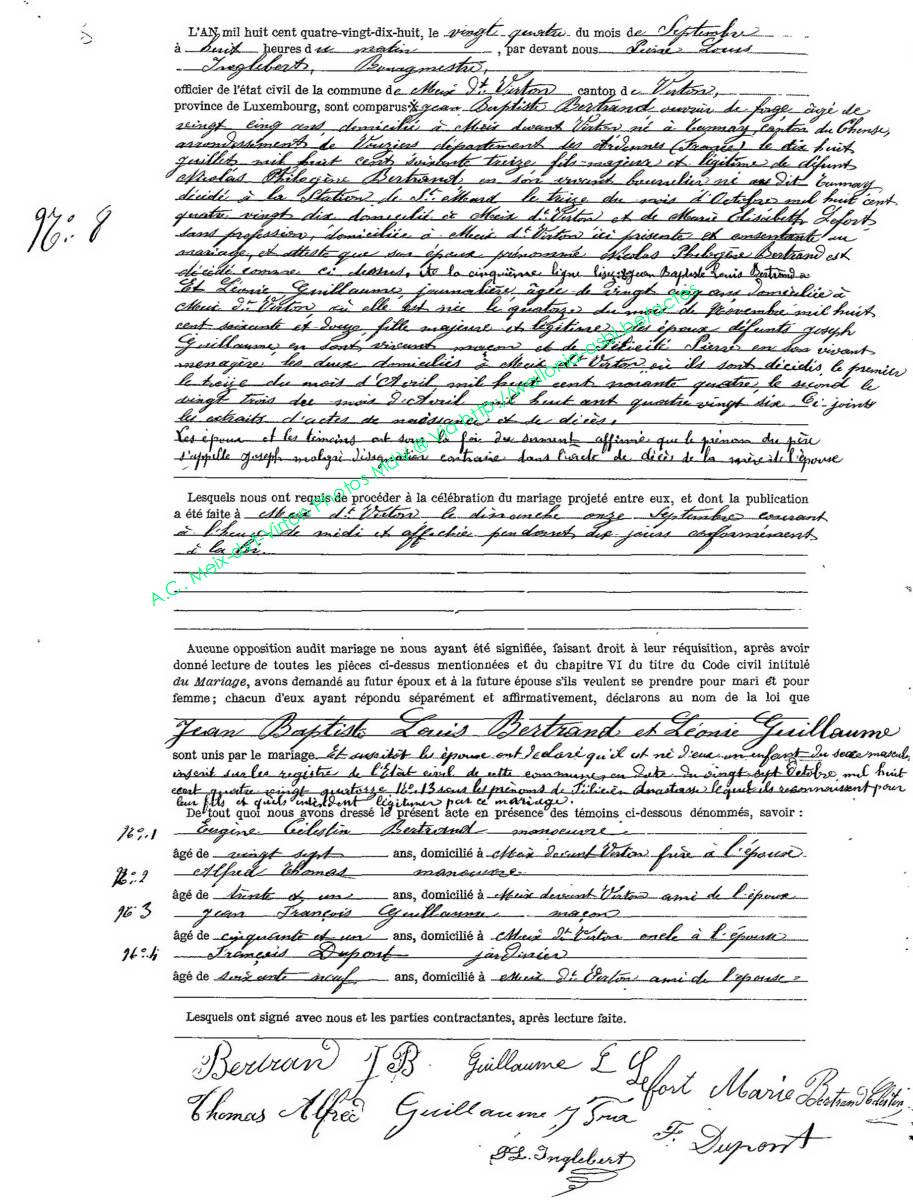 L'AN mil huit cent quatre-vingt-dix-huit, le vingt quatre du mois de Septembre
à huit heures du matin, par devant nous Louis
Inglebert, Bourgmestre,
officier de l'état civil de la commune de Meix dt Virton canton de Virton,
province de Luxembourg, sont comparus Jean Baptiste Bertrand ouvrier de forge âgé de
vingt cinq ans domicilié à Meix devant Virton né à Tannay, canton du Chesne,
arrondissement de Vouziers département des Ardennes (France) le dix huit
juillet mil huit cent soixante treize fils majeur et légitime de défunt
Nicolas Philogène Bertrand en son vivant bourrelier né au dit Tannay
décédé à la Station de St Mard le treize du mois d'Octobre mil huit cent
quatre vingt dix domicilié à Meix dt Virton et de Marie Elisabeth Lefort,
sans profession, domiciliée à Meix dt Virton ici présente et consentante au
mariage, et atteste que son époux prénommé Nicolas Philogène Bertrand est
décédé comme ci dessus. A la cinquième ligne lire Jean Baptiste Louis Bertrand
N° 8
Et Léonie Guillaume, journalière, âgée de vingt cinq ans domiciliée à
Meix dt Virton où elle est née le quatorze du mois de Novembre mil huit
cent soixante et douze, fille majeure et légitime des époux défunts Joseph
Guillaume en son vivant maçon et de Félicité Pierre en son vivant
menagère, les deux domiciliés à Meix dt Virton où ils sont décédés, le premier
le treize du mois d'Avril mil huit cent nonante quatre, le second le
vingt trois du mois d'Avril mil huit cent quatre vingt six Ci-joints
les extraits d'actes de naissance et de décès.
Les époux et les témoins ont sous la foi du serment affirmé que le prénom du père
s'appelle Joseph malgré désignation contraire dans l'acte de décès de la mère de l'épouse
Lesquels nous ont requis de procéder à la célébration du mariage projeté entre eux, et dont la publication
a été faite à Meix dt Virton le dimanche onze Septembre courant
à l'heure de midi et affichée pendant dix jours conformément
à la loi.
A.C. Meix-dvt-Virton Photos MaW ® Via http://wallonia-asbl.be/actos
Aucune opposition audit mariage ne nous ayant été signifiée, faisant droit à leur réquisition, après avoir
donné lecture de toutes les pièces ci-dessus mentionnées et du chapitre VI du titre du Code civil intitulé
du Mariage, avons demandé au futur époux et à la future épouse s'ils veulent se prendre pour mari et pour
femme ; chacun d'eux ayant répondu séparément et affirmativement, déclarons au nom de la loi que
Jean Baptiste Louis Bertrand et Léonie Guillaume
sont unis par le mariage. Et aussitôt les époux ont déclaré qu'il est né d'eux un enfant du sexe masculin,
inscrit sur les registre de l'Etat civil de cette commune, en date du vingt sept Octobre mil huit
cent quatre vingt quatorze N° 13 sous les prénoms de Félicien Anastase lequel ils reconnaissent pour
leur fils et qu'ils entendent légitimer par ce mariage.
De tout quoi nous avons dressé le présent acte en présence des témoins ci-dessous dénommés, savoir :
N° 1 Eugène Célestin Bertrand manoeuvre
âgé de vingt sept ans, domicilié à Meix devant Virton frère à l'époux
N° 2 Alfred Thomas manoeuvre
âgé de trente et un ans, domicilié à Meix devant Virton ami de l'époux
N° 3 Jean François Guillaume maçon
âgé de cinquante et un ans, domicilié à Meix dt Virton oncle à l'épouse
N° 4 François Dupont jardinier
âgé de soixante neuf ans, domicilié à Meix dt Virton ami de l'épouse
Lesquels ont signé avec nous et les parties contractantes, après lecture faite.
Bertran J B Guillaume L Lefort Marie Bertrand Célestin
Thomas Alfred Guillaume J F. Dupont
Inglebert